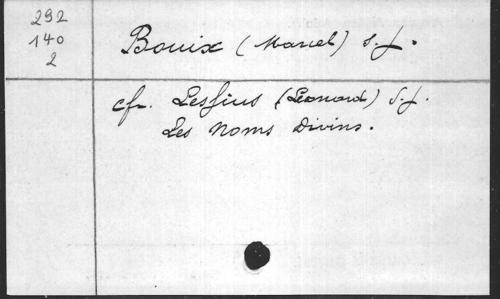 292
140
2
Bouix (Marcel) S.J.
cfr. Lessius (Léonard) S.J.
Les Noms Divins.